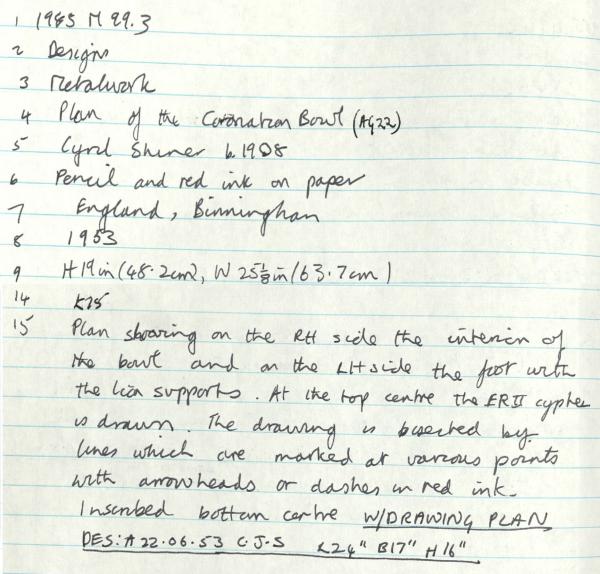 1 1985 M 99.3
2 Design
3 Metalwork
4 Plan of the Coronation Bowl (AG22)
5 Cyril Shiner b. 1908
6 Pencil and red ink on paper
7 England, Birmingham
8 1953
9 H 19 in (48.2cm), W 25⅛ in (63.7cm)
14 K25
15 Plan showing on the RH side the interior of
the bowl and on the LH side the foot with
the lion supports. At the top centre the ERII cypher
is drawn. The drawing is bisected by
lines which are marked at various points
with arrowheads or dashes in red ink.
Inscribed bottom centre W/DRAWING PLAN
DES: A 22.06.53 C.J.S L24" B17" H16"